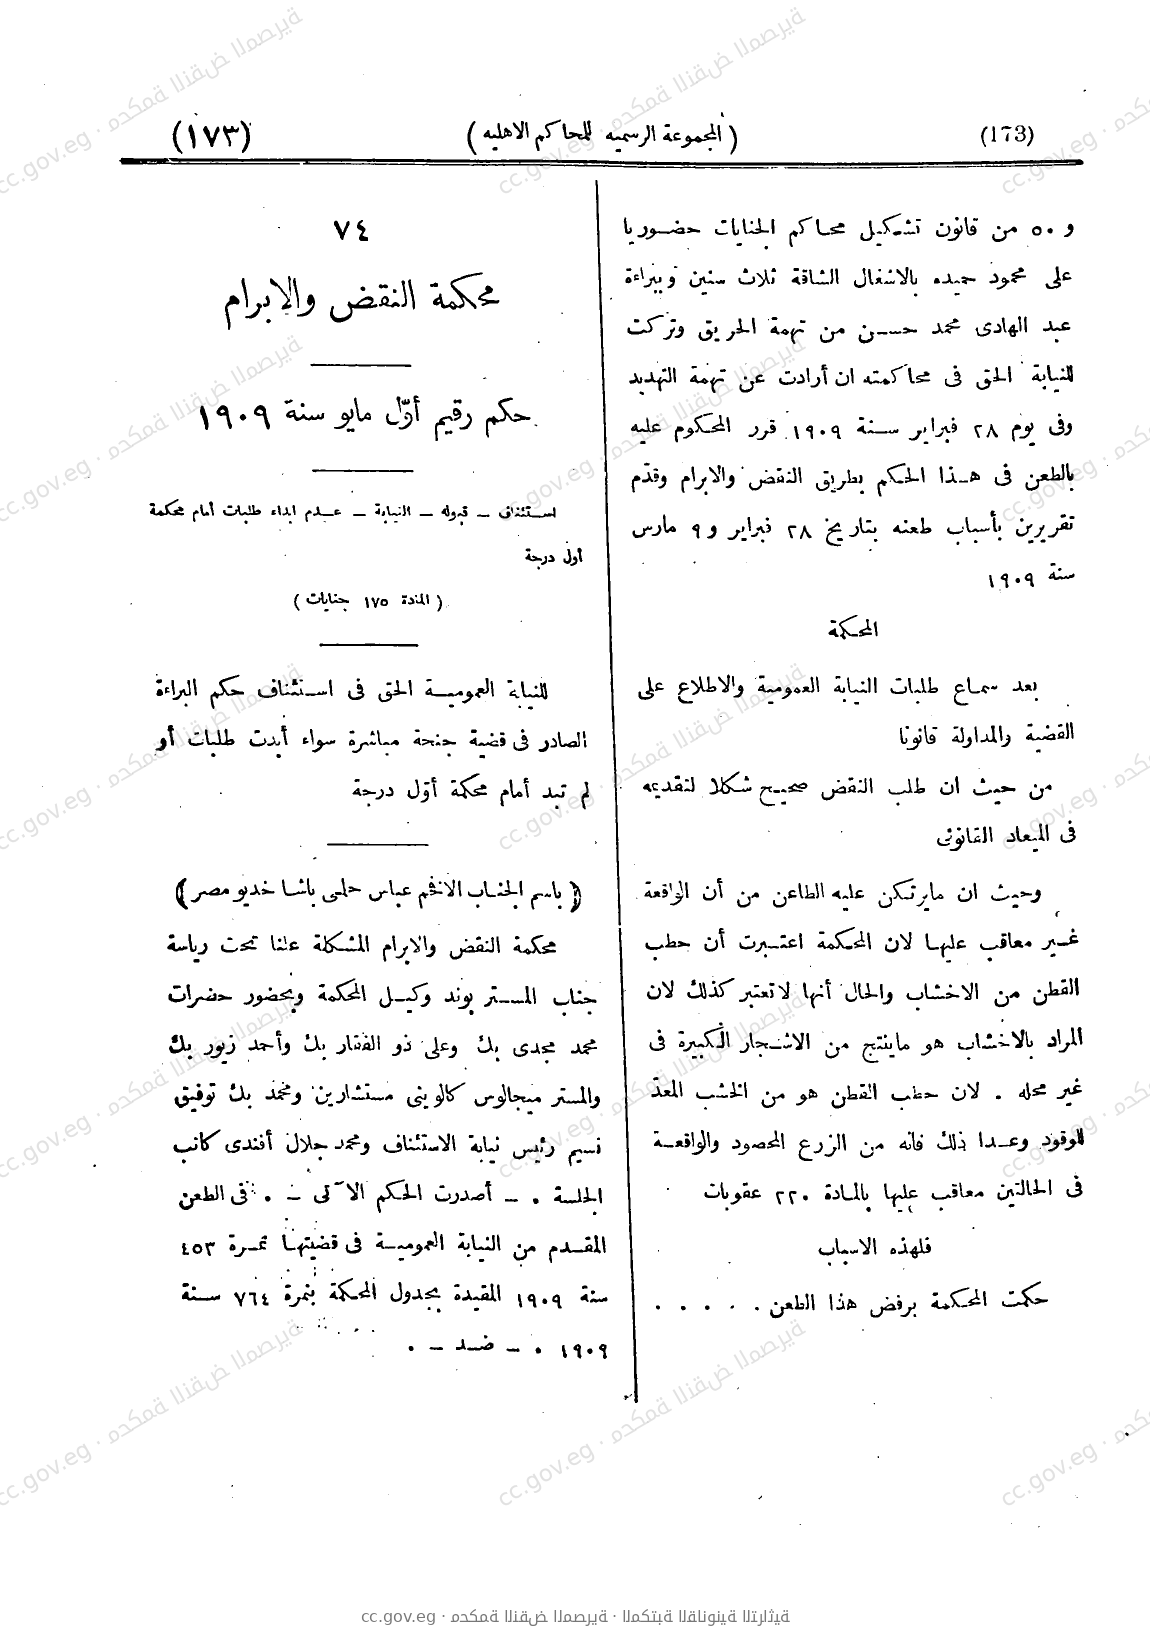 (173)
(المجموعة الرسميه للمحاكم الاهليه)
(١٧٣)
و ٥٠ من قانون تشكيل محاكم الجنايات حضوريا
على محمود حميده بالاشغال الشاقة ثلاث سنين وببراءة
عبد الهادى محمد حسن من تهمة الحريق وتركت
للنيابة الحق فى محاكمته ان أرادت عن تهمة التهديد
وفى يوم ٢٨ فبراير سنة ١٩٠٩ قرر المحكوم عليه
بالطعن فى هذا الحكم بطريق النقض والابرام وقدّم
تقريرين بأسباب طعنه بتاريخ ٢٨ فبراير و ٩ مارس
سنة ١٩٠٩
المحكمة
بعد سماع طلبات النيابة العمومية والاطلاع على
القضية والمداولة قانونا
من حيث ان طلب النقض صحيح شكلا لتقديمه
فى الميعاد القانونى
وحيث ان مايرتكن عليه الطاعن من أن الواقعة
غير معاقب عليها لان المحكمة اعتبرت أن حطب
القطن من الاخشاب والحال أنها لا تعتبر كذلك لان
المراد بالاخشاب هو ماينتج من الاشجار الكبيرة فى
غير محله . لان حطب القطن هو من الخشب المعدّ
للوقود وعدا ذلك فانه من الزرع المحصود والواقعة
فى الحالتين معاقب عليها بالمادة ٢٢٠ عقوبات
فلهذه الاسباب
حكمت المحكمة برفض هذا الطعن . . . . .
٧٤
محكمة النقض والابرام
حكم رقيم أوّل مايو سنة ١٩٠٩
استئناف – قبوله – النيابة – عدم ابداء طلبات أمام محكمة
أول درجة
(المادة ١٧٥ جنايات)
للنيابة العمومية الحق فى استئناف حكم البراءة
الصادر فى قضية جنحة مباشرة سواء أبدت طلبات أو
لم تبد أمام محكمة أوّل درجة
(باسم الجناب الافخم عباس حلمى باشا خديو مصر)
محكمة النقض والابرام المشكلة علنا تحت رياسة
جناب المستر بوند وكيل المحكمة وبحضور حضرات
محمد مجدى بك وعلى ذو الفقار بك وأحمد زيور بك
والمستر ميجالوس كالوينى مستشارين ومحمد بك توفيق
نسيم رئيس نيابة الاستئناف ومحمد جلال أفندى كاتب
الجلسة . – أصدرت الحكم الآتى – . فى الطعن
المقدم من النيابة العمومية فى قضيتها نمرة ٤٥٣
سنة ١٩٠٩ المقيدة بجدول المحكمة بنمرة ٧٦٤ سنة
١٩٠٩ . – ضد – .
cc.gov.eg · محكمة النقض المصرية · المكتبة القانونية التراثية